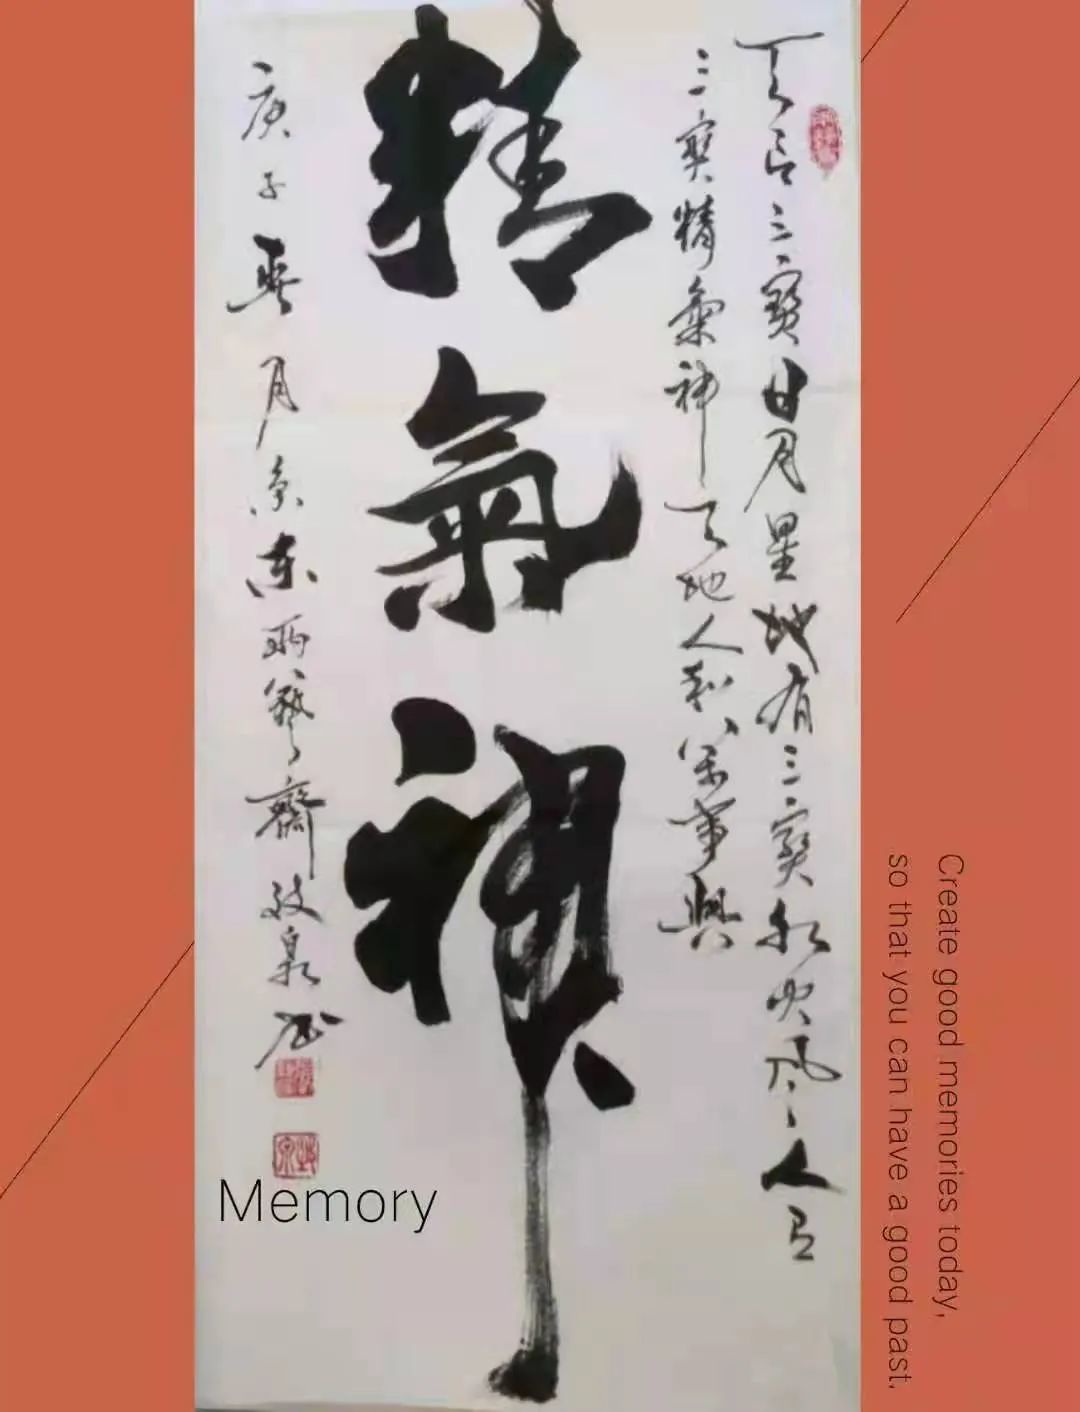 天有三寶日月星地有三寶水火風人有
三寶精氣神天地人和萬事興
精氣神
庚子月京東兩藝齋泉書
Memory
Create good memories today,
so that you can have a good past.